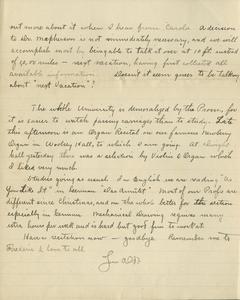 out more about it when I hear from Carola. A decision
to Mr. Macpherson is not immediately necessary, and we will
accomplish most by being able to talk it over at 10 ft. instead
of 10,000 miles – next vacation, having first collected all
available information. Doesn't it seem queer to be talking
about "next vacation"?
The whole University is demoralized by the Prom, for
it is easier to watch passing carriages than to study. Late
this afternoon is an Organ Recital on our famous Newberry
Organ in Woolsey Hall, to which I am going. At chapel
half yesterday there was a selection by Violin & Organ which
I liked very much.
Studies going as usual. In English we are reading "As
You Like It" in German "Das Amulet". Most of our Profs are
different since Christmas, and on the whole better for the section
especially in German. Mechanical Drawing requires many
extra hours per week and is hard but good fun to work at.
Have a recitation now – goodbye. Remember me to
Frederic & love to all